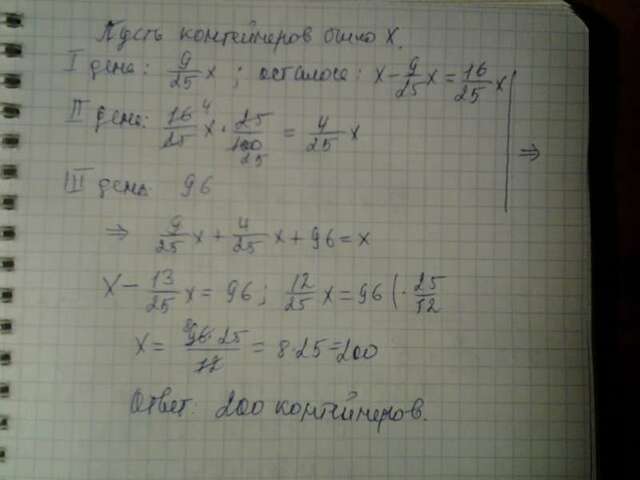 Пусть контейнеров было x.
I день: 9/25 x ; осталось: x - 9/25 x = 16/25 x
II день: 16/25 x · 25/100 = 4/25 x
4 25
⇒
III день 96
⇒ 9/25 x + 4/25 x + 96 = x
x - 13/25 x = 96 ; 12/25 x = 96 | · 25/12
x = 96·25/12 = 8·25 = 200
8
Ответ: 200 контейнеров.